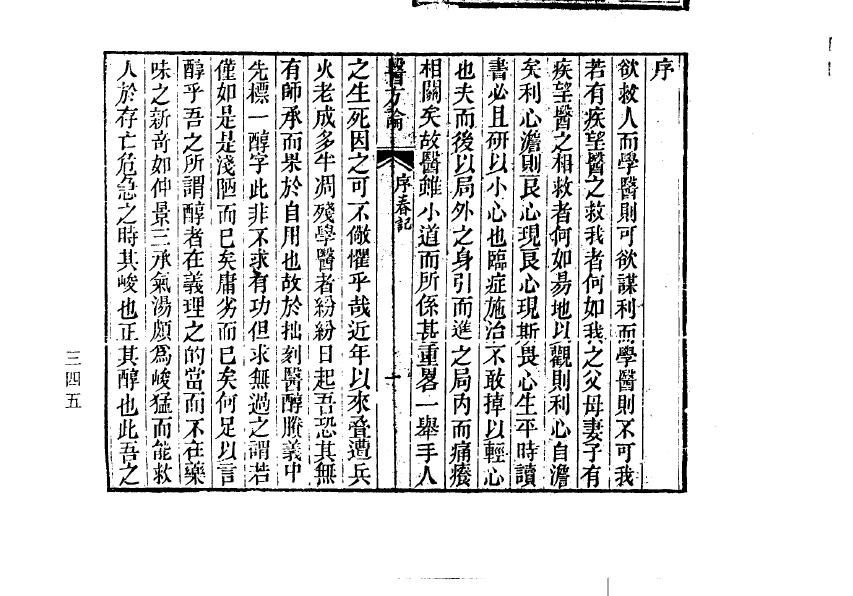 序
欲救人而學醫則可欲謀利而學醫則不可我
若有疾望醫之救我者何如我之父母妻子有
疾望醫之相救者何如易地以觀則利心自澹
矣利心澹則良心現良心現斯畏心生平時讀
書必且研以小心也臨症施治不敢掉以輕心
也夫而後以局外之身引而進之局內而痛癢
相關矣故醫雖小道而所係甚重畧一舉手人
醫方論
序春記
一
之生死因之可不儆懼乎哉近年以來疊遭兵
火老成多半凋殘學醫者紛紛日起吾恐其無
有師承而果於自用也故於拙刻醫醇賸義中
先標一醇字此非不求有功但求無過之謂若
僅如是是淺陋而已矣庸劣而已矣何足以言
醇乎吾之所謂醇者在義理之的當而不在藥
味之新奇如仲景三承氣湯頗為峻猛而能救
人於存亡危急之時其峻也正其醇也此吾之
三四五